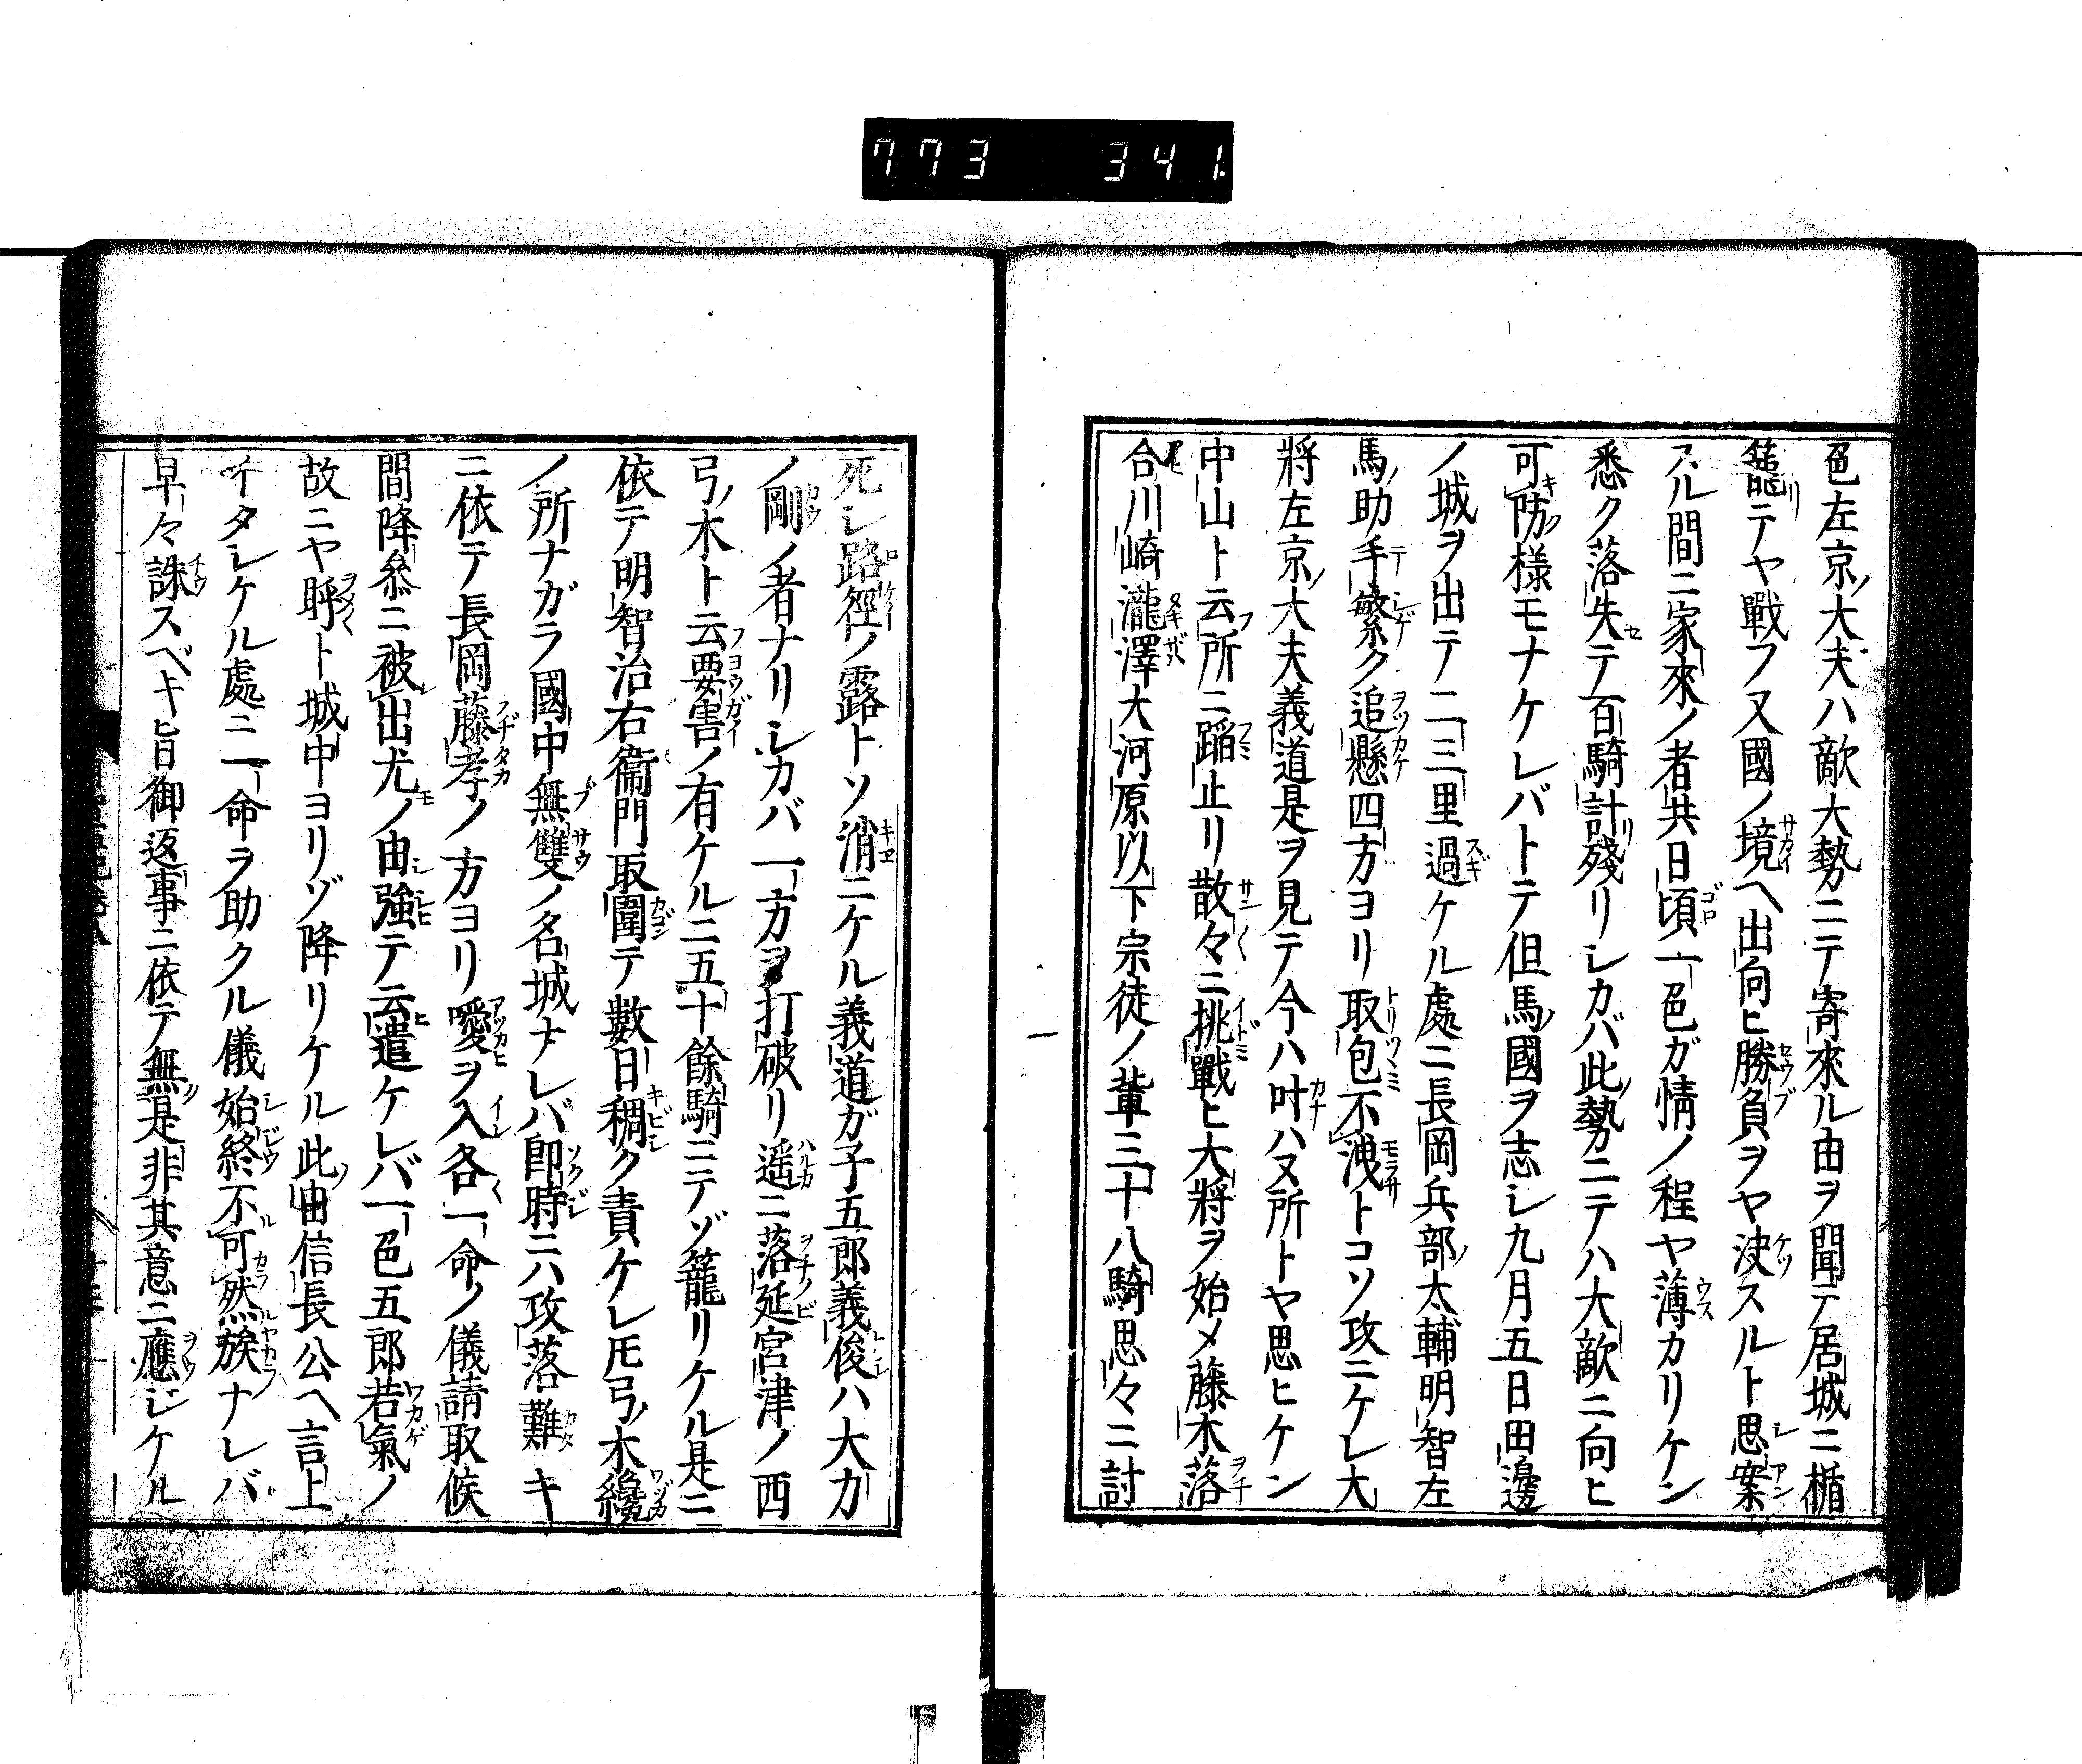 773 341.
色左京大夫ハ敵大勢ニテ寄來ル由ヲ聞テ居城ニ楯
籠テヤ戰フ又國ノ境ヘ出向ヒ勝負ヲヤ決スルト思案
アル間ニ家來ノ者共日頃一色ガ情ノ程ヤ薄カリケン
悉ク落失テ百騎計殘リシカバ此勢ニテハ大敵ニ向ヒ
可防樣モナケレバトテ但馬國ヲ志シ九月五日田邊
ノ城ヲ出テ二三里過ケル處ニ長岡兵部太輔明智左
馬助手繁ク追懸四方ヨリ取包不洩トコソ攻ニケレ大
將左京大夫義道是ヲ見テ今ハ叶ハヌ所トヤ思ヒケン
中山ト云所ニ蹈止リ散々ニ挑戰ヒ大將ヲ始メ藤木落
合川崎瀧澤大河原以下宗徒ノ輩三十八騎思々ニ討
死シ路徑ノ露トソ消ニケル義道ガ子五郎義俊ハ大力
ノ剛ノ者ナリシカバ一方ヲ打破リ遥ニ落延宮津ノ西
弓木ト云要害ノ有ケルニ五十餘騎ニテゾ籠リケル是ニ
依テ明智治右衞門取圍テ數日稠ク責ケレ𪜈弓木纔
ノ所ナガラ國中無雙ノ名城ナレバ即時ニハ攻落難キ
ニ依テ長岡藤孝ノ方ヨリ噯ヲ入各一命ノ儀請取候
間降參ニ被出尤ノ由強テ云遣ケレバ一色五郎若氣ノ
故ニヤ呼ト城中ヨリゾ降リケル此由信長公ヘ言上
イタシケル處ニ一命ラ助クル儀始終不可然族ナレバ
早々誅スベキ旨御返事ニ依テ無是非其意ニ應ジケル